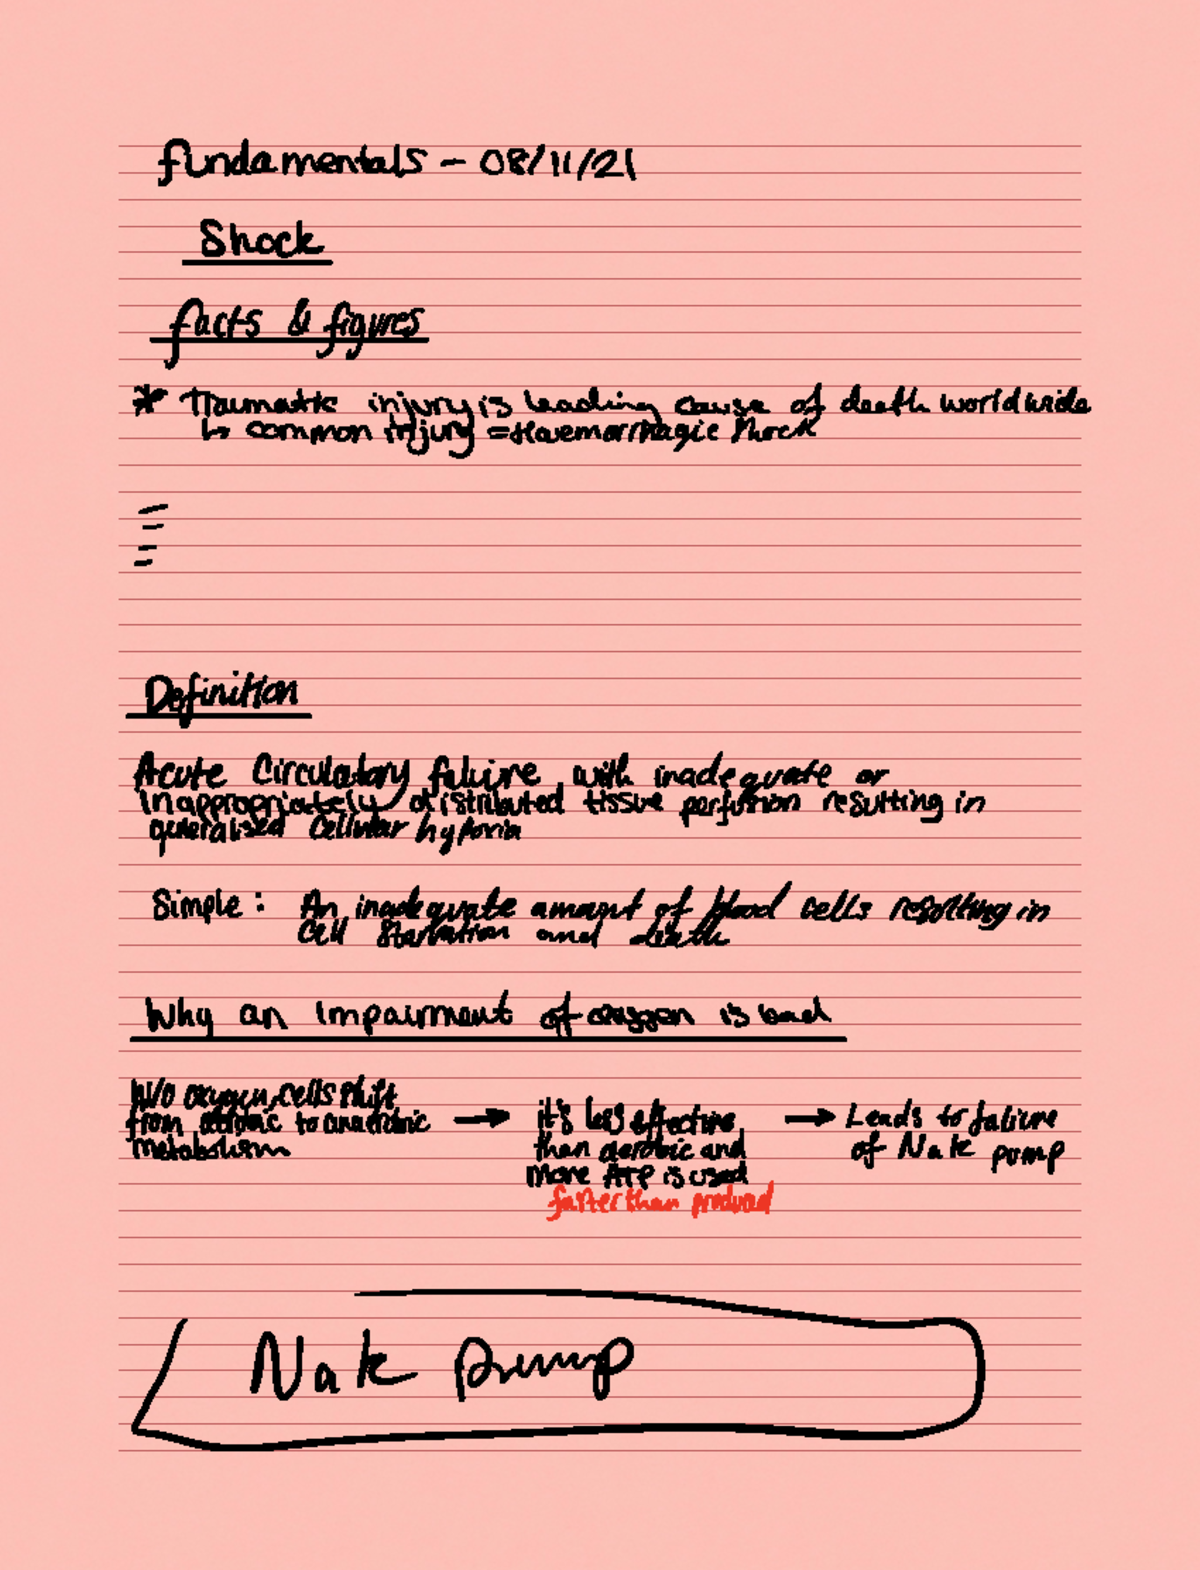 fundamentals - 08/11/21
Shock
facts & figures
* Traumatic injury is leading cause of death worldwide
↳ common injury = Haemorrhagic shock
Definition
Acute Circulatory failure with inadequate or
inappropriately distributed tissue perfusion resulting in
generalised Cellular hypoxia
Simple: An inadequate amount of blood cells resulting in
cell starvation and death
Why an impairment of oxygen is bad
W/O oxygen, cells shift
from aerobic to anaerobic → it's less effective → Leads to failure
metabolism than aerobic and of Nak pump
more ATP is used
faster than produced
Nak pump